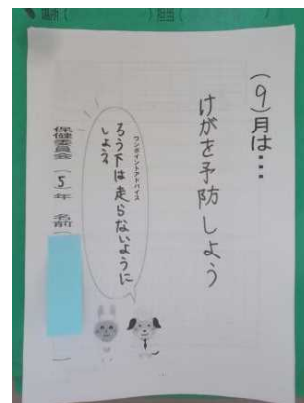 場所( )担当(
(9)月は…
けがを予防しよう
ワンポイントアドバイス
ろう下は走らないように
しよう
保健委員会(5)年 名前( )